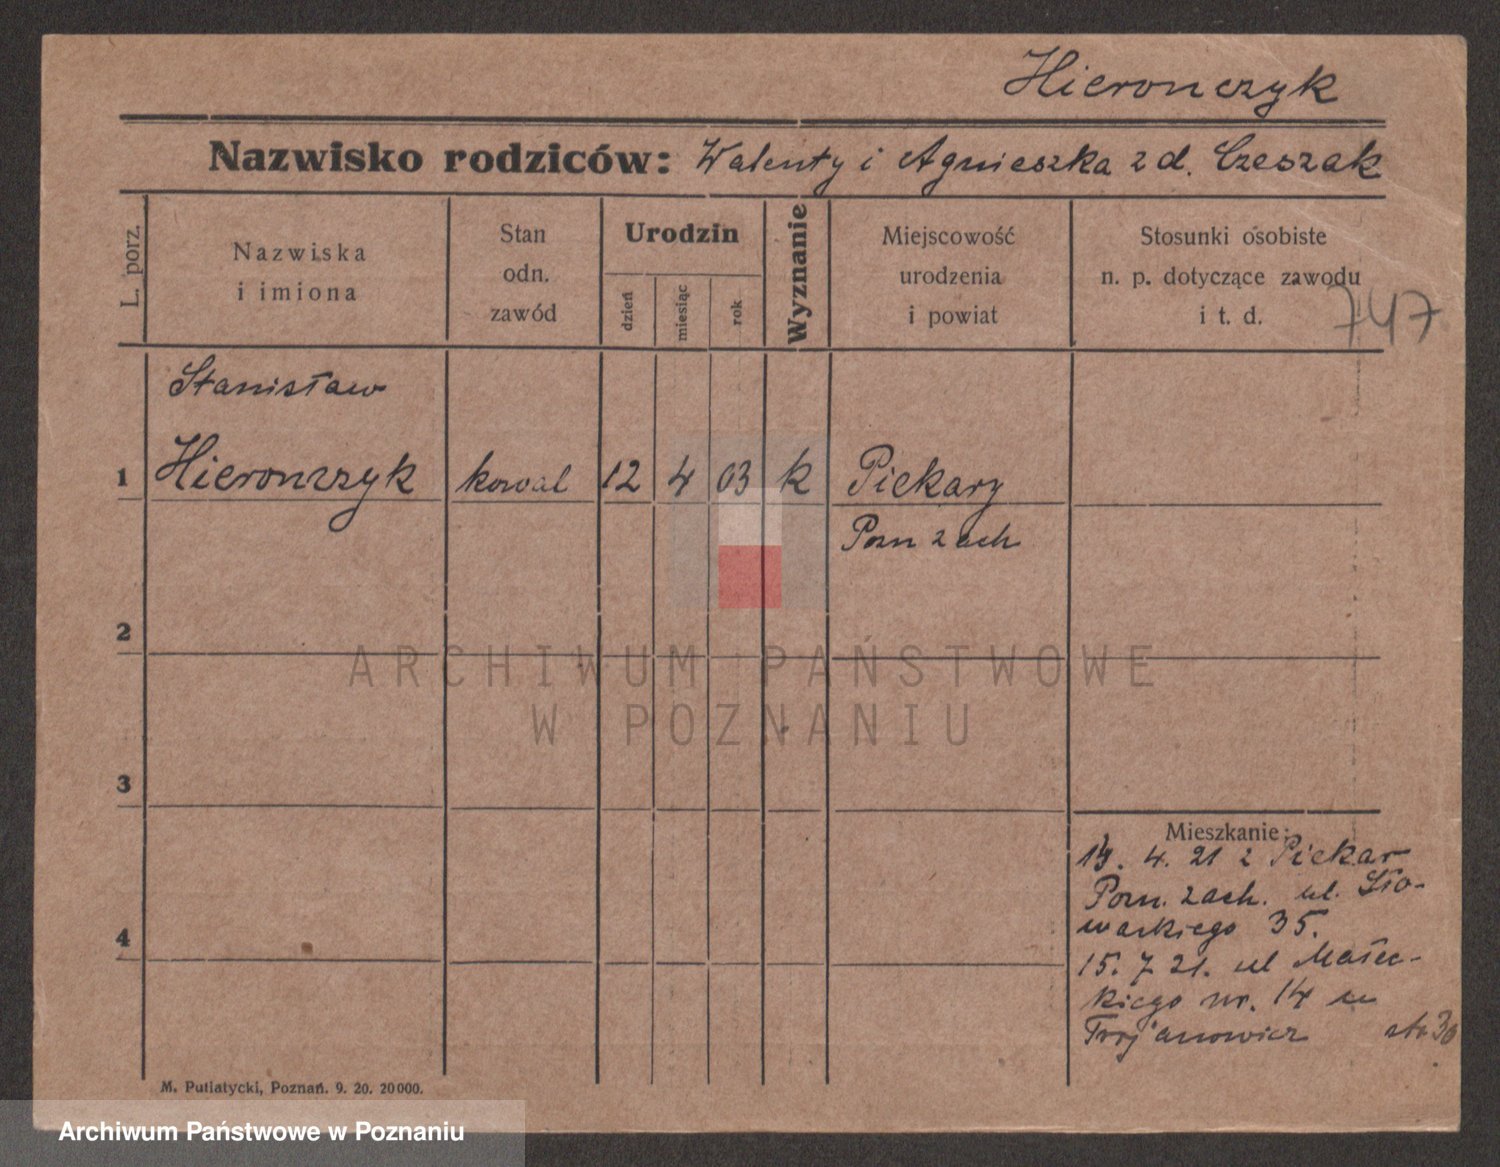 Hieronczyk
Nazwisko rodziców: Walenty i Agnieszka z d. Czeszak
L. porz.
Nazwiska
i imiona
Stan
odn.
zawód
Urodzin
dzień
miesiąc
rok
Wyznanie
Miejscowość
urodzenia
i powiat
Stosunki osobiste
n. p. dotyczące zawodu
i t. d.
747
Stanisław
1 Hieronczyk kowal 12 4 03 k Piekary
Pozn zach
2
ARCHIWUM PAŃSTWOWE
W POZNANIU
3
Mieszkanie:
4. 21 z Piekar
Pozn. zach. ul. Sło-
wackiego 35.
4
15. 7 21. ul Małec-
kiego nr. 14 u
Trojanowicz
30
M. Putiatycki, Poznań. 9. 20. 20000.
Archiwum Państwowe w Poznaniu